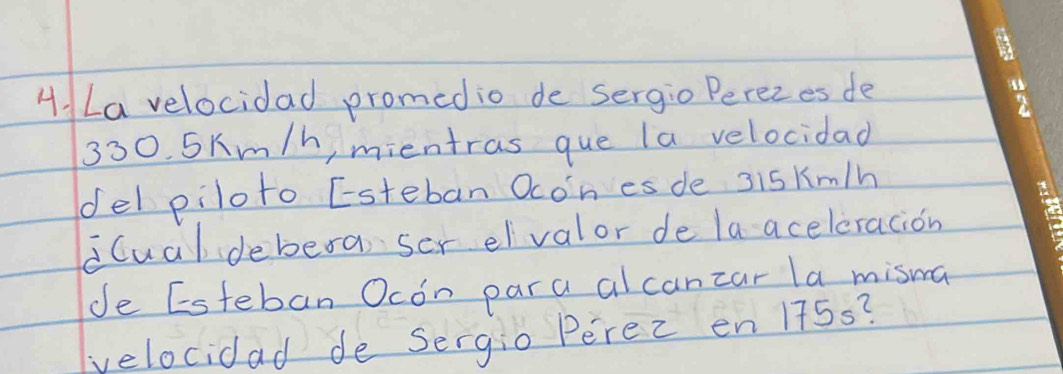 4. La velocidad promedio de Sergio Perez es de
330.5Km/h, mientras que la velocidad
del piloto Esteban Ocón es de 315 Km/h
¿Cual debera ser el valor de la aceleración
de Esteban Ocón para alcanzar la misma
velocidad de Sergio Pérez en 175s?